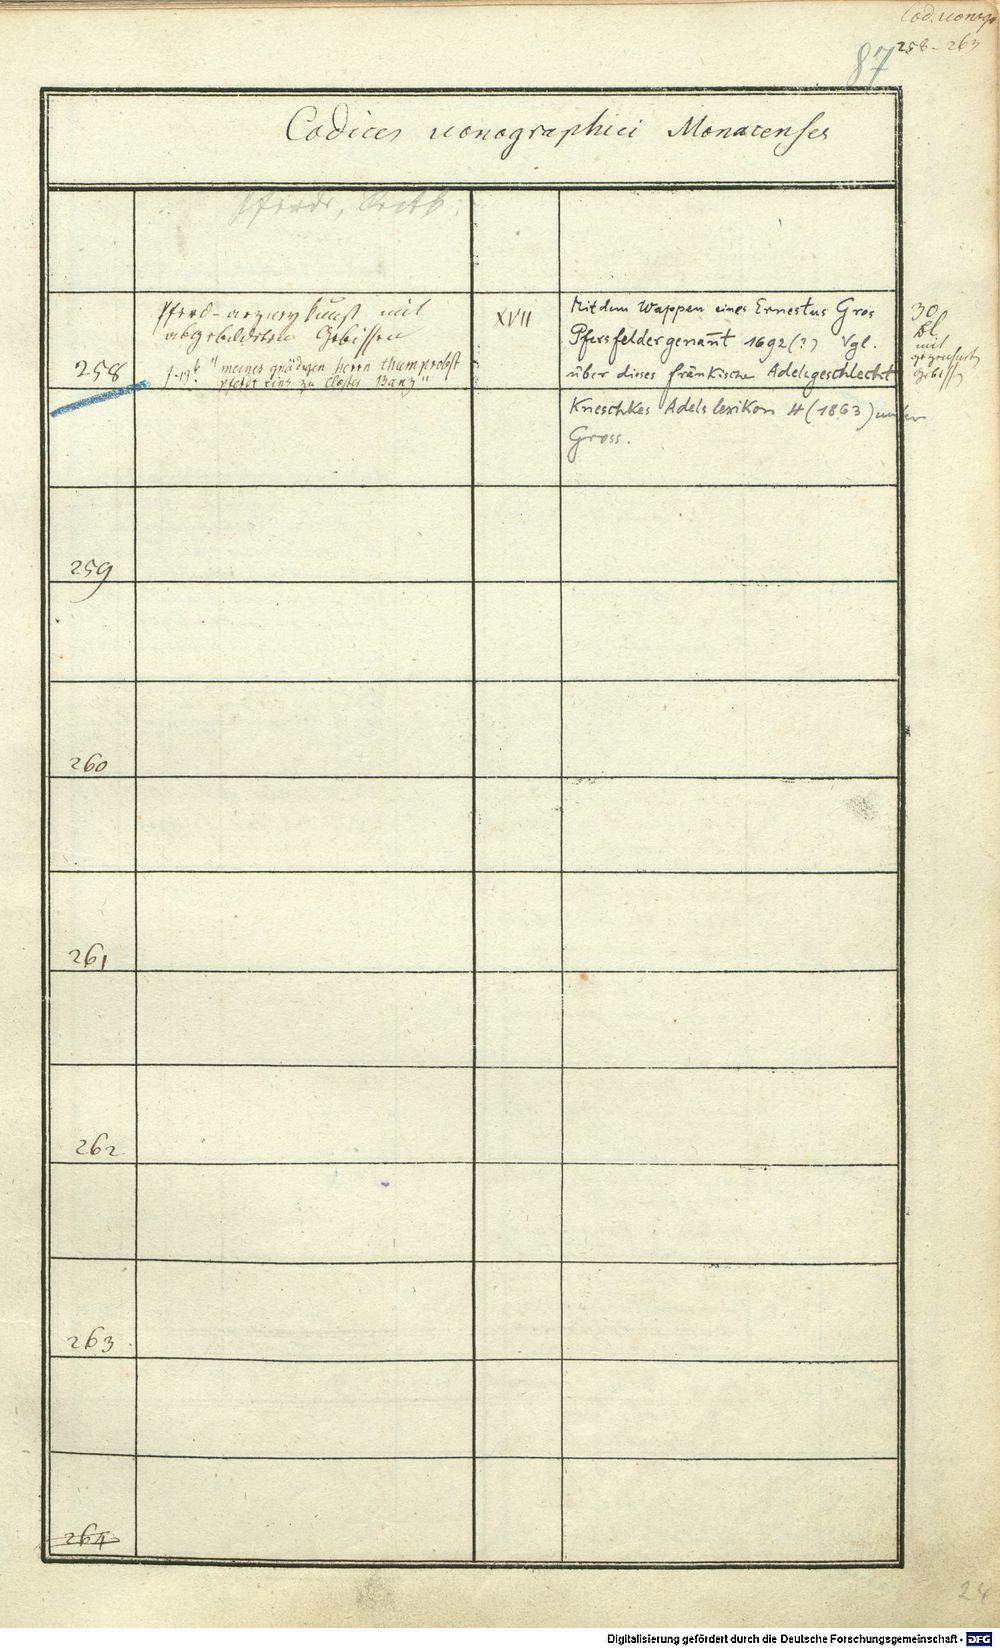 Cod. iconogr
258-263
87
Codices iconographici Monacenses
Pferde,
Pferd-arzney kunst mit
abgebildeten Gebissen
XVII
Mit dem Wappen eines Ernestus Gros
Pfersfelder genannt 1692(?) Vgl.
über dieses fränkische Adelsgeschlecht
Kneschkes Adelslexikon 4 (1863) unter
Gross.
30
Bl.
mit
Gebiss
258
"meines gnädigen herrn thumprobst
pferdt eins zu closter Banz"
259
260
261
262
263
264
24
Digitalisierung gefördert durch die Deutsche Forschungsgemeinschaft - DFG